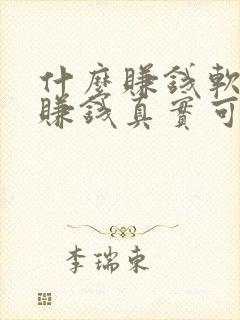 什麼賺錢軟
賺錢真實可
李瑞東